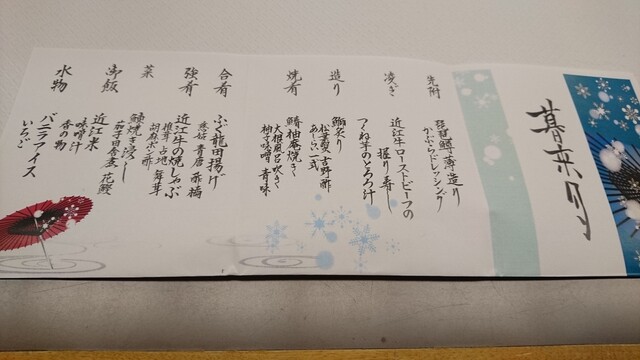 暮来月
先附
琵琶鱒薄造り
かぶらドレッシング
凌ぎ
近江牛ローストビーフの
握り寿し
つくね芋のとろろ汁
造り
鰤炙り
あしらい一式
焼肴
鰆柚庵焼き
大根風呂吹き
柚子味噌 青味
合肴
ふぐ龍田揚げ
青唐 酢橘
強肴
近江牛の焼しゃぶ
椎茸 占地 舞茸
胡麻ポン酢
菜
茄子田舎煮 花鰹
御飯
近江米
味噌汁
香の物
水物
バニラアイス
いちご